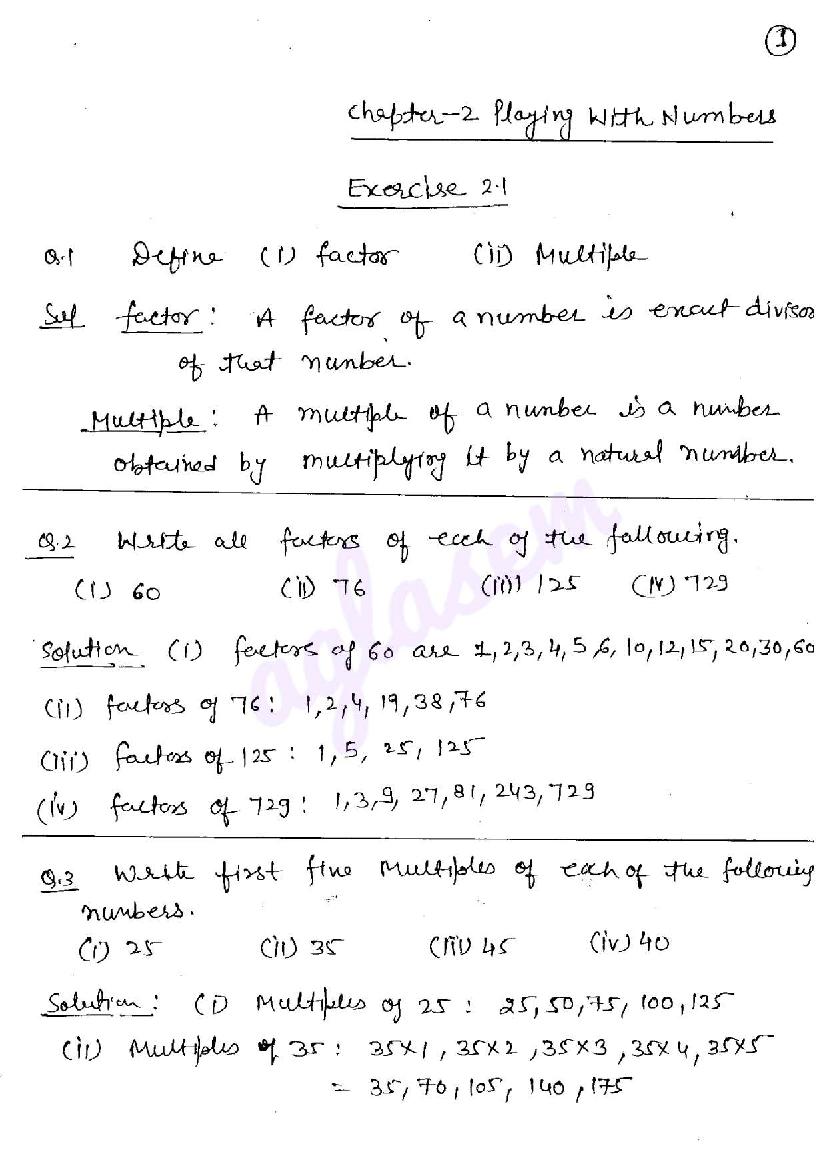 1
Chapter-2 Playing With Numbers
Exercise 2.1
Q.1 Define (i) factor (ii) Multiple
Sol factor: A factor of a number is exact divisor
of that number.
Multiple: A multiple of a number is a number
obtained by multiplying it by a natural number.
Q.2 Write all factors of each of the following.
(i) 60 (ii) 76 (iii) 125 (iv) 729
Solution (i) factors of 60 are 1,2,3,4,5,6,10,12,15,20,30,60
(ii) factors of 76: 1,2,4,19,38,76
(iii) factors of 125: 1,5, 25, 125
(iv) factors of 729: 1,3,9, 27,81,243,729
Q.3 Write first five Multiples of each of the following
numbers.
(i) 25 (ii) 35 (iii) 45 (iv) 40
Solution: (i) Multiples of 25: 25,50,75, 100,125
(ii) Multiples of 35: 35×1, 35×2, 35×3, 35×4, 35×5
= 35, 70, 105, 140, 175
aglasem